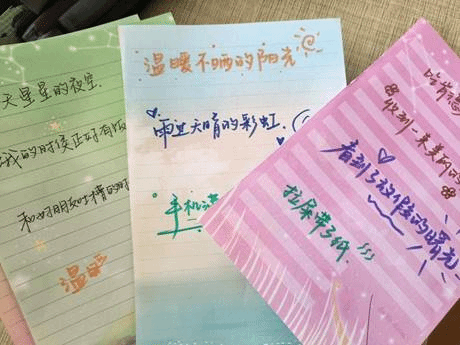 天星星的夜空.
我的时候正好有饭
和好朋友吐槽的时
温暖
温暖不晒的阳光
雨过天晴的彩虹.
手机满
收到一束美丽的
看到了放假的曙光
拉屎带了纸.